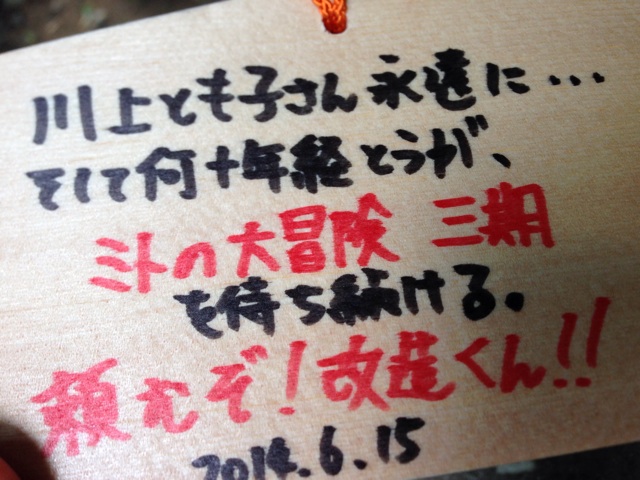 川上とも子さん永遠に…
そして何十年経とうが、
ミトの大冒険 三期
を待ち続ける。
頼むぞ!改造くん!!
2014.6.15